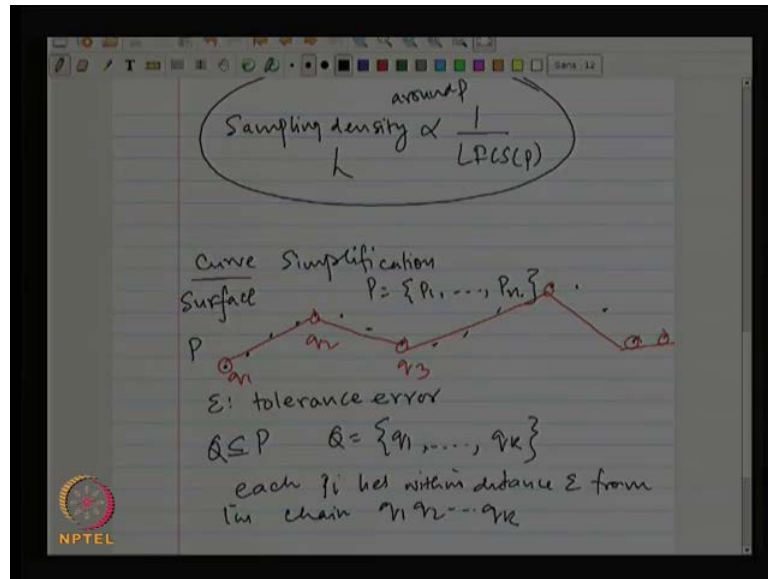 T
Sans 12
around p
Sampling density ∝ 1
LFCS(P)
h
Curve Simplification
Surface
P = {P1, ..., Pn}
P
q1
q2
q3
ε: tolerance error
Q ⊆ P Q = {q1, ..., qk}
each Pi lies within distance ε from
the chain q1 q2 --- qk
NPTEL